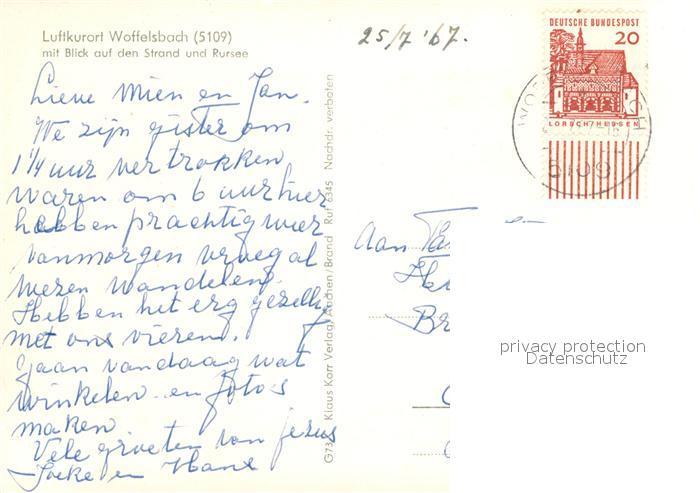 Luftkurort Woffelsbach (5109)
mit Blick auf den Strand und Rursee
25/7 '67.
DEUTSCHE BUNDESPOST
20
LORSCH/HESSEN
5109
Lieve Mien en Jan.
We zijn gister om
1¼ uur vertrokken
waren om 6 uur hier
hebben prachtig weer
vanmorgen vroeg al
wezen wandelen.
Hebben het erg gezellig
met ons vieren.
Gaan vandaag wat
winkelen en foto's
maken
Vele groeten van
en Hans
Klaus Karr Verlag, Aachen/Brand Ruf 6345 Nachdr. verboten
Aan
Br
privacy protection
Datenschutz